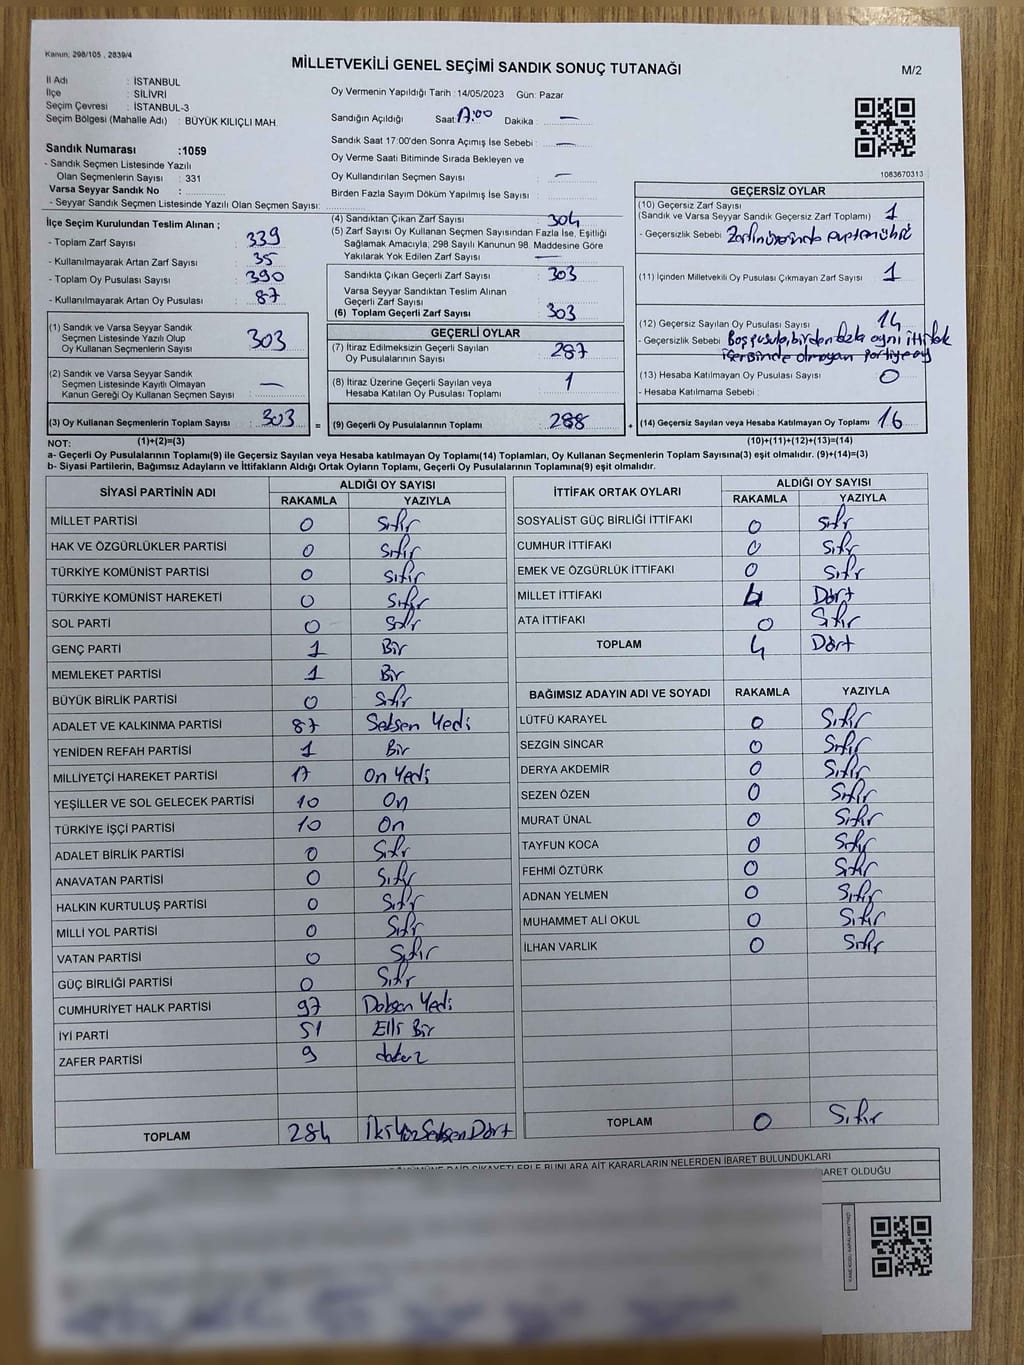 Kanun: 298/105 , 2839/4
MİLLETVEKİLİ GENEL SEÇİMİ SANDIK SONUÇ TUTANAĞI
M/2
İl Adı : İSTANBUL
İlçe : SİLİVRİ
Seçim Çevresi : İSTANBUL-3
Seçim Bölgesi (Mahalle Adı) : BÜYÜK KILIÇLI MAH.
Sandık Numarası :1059
- Sandık Seçmen Listesinde Yazılı
Olan Seçmenlerin Sayısı : 331
Varsa Seyyar Sandık No :
- Seyyar Sandık Seçmen Listesinde Yazılı Olan Seçmen Sayısı:
Oy Vermenin Yapıldığı Tarih :14/05/2023 Gün: Pazar
Sandığın Açıldığı Saat 17:00 Dakika : —
Sandık Saat 17:00'den Sonra Açımış İse Sebebi : —
Oy Verme Saati Bitiminde Sırada Bekleyen ve
Oy Kullandırılan Seçmen Sayısı : —
Birden Fazla Sayım Döküm Yapılmış İse Sayısı :
1083670313
İlçe Seçim Kurulundan Teslim Alınan ;
- Toplam Zarf Sayısı : 339
- Kullanılmayarak Artan Zarf Sayısı : 35
- Toplam Oy Pusulası Sayısı : 390
- Kullanılmayarak Artan Oy Pusulası : 87
(1) Sandık ve Varsa Seyyar Sandık
Seçmen Listesinde Yazılı Olup
Oy Kullanan Seçmenlerin Sayısı : 303
(2) Sandık ve Varsa Seyyar Sandık
Seçmen Listesinde Kayıtlı Olmayan
Kanun Gereği Oy Kullanan Seçmen Sayısı : —
(3) Oy Kullanan Seçmenlerin Toplam Sayısı : 303 =
(4) Sandıktan Çıkan Zarf Sayısı : 304
(5) Zarf Sayısı Oy Kullanan Seçmen Sayısından Fazla İse, Eşitliği
Sağlamak Amacıyla, 298 Sayılı Kanunun 98. Maddesine Göre
Yakılarak Yok Edilen Zarf Sayısı : —
Sandıkta Çıkan Geçerli Zarf Sayısı : 303
Varsa Seyyar Sandıktan Teslim Alınan
Geçerli Zarf Sayısı :
(6) Toplam Geçerli Zarf Sayısı : 303
GEÇERLİ OYLAR
(7) İtiraz Edilmeksizin Geçerli Sayılan
Oy Pusulalarının Sayısı : 287
(8) İtiraz Üzerine Geçerli Sayılan veya
Hesaba Katılan Oy Pusulası Toplamı : 1
(9) Geçerli Oy Pusulalarının Toplamı : 288 +
GEÇERSİZ OYLAR
(10) Geçersiz Zarf Sayısı
(Sandık ve Varsa Seyyar Sandık Geçersiz Zarf Toplamı) : 1
- Geçersizlik Sebebi : Zarfın üzerinde
(11) İçinden Milletvekili Oy Pusulası Çıkmayan Zarf Sayısı : 1
(12) Geçersiz Sayılan Oy Pusulası Sayısı : 14
- Geçersizlik Sebebi : Boş pusula, birden fazla aynı ittifak
içerisinde olmayan partiye oy
(13) Hesaba Katılmayan Oy Pusulası Sayısı : 0
- Hesaba Katılmama Sebebi :
(14) Geçersiz Sayılan veya Hesaba Katılmayan Oy Toplamı : 16
NOT: (1)+(2)=(3) (10)+(11)+(12)+(13)=(14)
a- Geçerli Oy Pusulasının Toplamı(9) ile Geçersiz Sayılan veya Hesaba Katılmayan Oy Toplamı(14) Toplamları, Oy Kullanan Seçmenlerin Toplam Sayısına(3) eşit olmalıdır. (9)+(14)=(3)
b- Siyasi Partilerin, Bağımsız Adayların ve İttifakların Aldığı Ortak Oyların Toplamı, Geçerli Oy Pusulalarının Toplamına(9) eşit olmalıdır.
SİYASİ PARTİNİN ADI ALDIĞI OY SAYISI
RAKAMLA YAZIYLA
MİLLET PARTİSİ 0 Sıfır
HAK VE ÖZGÜRLÜKLER PARTİSİ 0 Sıfır
TÜRKİYE KOMÜNİST PARTİSİ 0 Sıfır
TÜRKİYE KOMÜNİST HAREKETİ 0 Sıfır
SOL PARTİ 0 Sıfır
GENÇ PARTİ 1 Bir
MEMLEKET PARTİSİ 1 Bir
BÜYÜK BİRLİK PARTİSİ 0 Sıfır
ADALET VE KALKINMA PARTİSİ 87 Seksen Yedi
YENİDEN REFAH PARTİSİ 1 Bir
MİLLİYETÇİ HAREKET PARTİSİ 17 On Yedi
YEŞİLLER VE SOL GELECEK PARTİSİ 10 On
TÜRKİYE İŞÇİ PARTİSİ 10 On
ADALET BİRLİK PARTİSİ 0 Sıfır
ANAVATAN PARTİSİ 0 Sıfır
HALKIN KURTULUŞ PARTİSİ 0 Sıfır
MİLLİ YOL PARTİSİ 0 Sıfır
VATAN PARTİSİ 0 Sıfır
GÜÇ BİRLİĞİ PARTİSİ 0 Sıfır
CUMHURİYET HALK PARTİSİ 97 Doksen Yedi
İYİ PARTİ 51 Elli Bir
ZAFER PARTİSİ 9 dokuz
TOPLAM 284 İkiYüzSeksenDört
İTTİFAK ORTAK OYLARI ALDIĞI OY SAYISI
RAKAMLA YAZIYLA
SOSYALİST GÜÇ BİRLİĞİ İTTİFAKI 0 Sıfır
CUMHUR İTTİFAKI 0 Sıfır
EMEK VE ÖZGÜRLÜK İTTİFAKI 0 Sıfır
MİLLET İTTİFAKI 4 Dört
ATA İTTİFAKI 0 Sıfır
TOPLAM 4 Dört
BAĞIMSIZ ADAYIN ADI VE SOYADI RAKAMLA YAZIYLA
LÜTFÜ KARAYEL 0 Sıfır
SEZGİN SİNCAR 0 Sıfır
DERYA AKDEMİR 0 Sıfır
SEZEN ÖZEN 0 Sıfır
MURAT ÜNAL 0 Sıfır
TAYFUN KOCA 0 Sıfır
FEHMİ ÖZTÜRK 0 Sıfır
ADNAN YELMEN 0 Sıfır
MUHAMMET ALİ OKUL 0 Sıfır
İLHAN VARLIK 0 Sıfır
TOPLAM 0 Sıfır
BUNLARA AİT KARARLARIN NELERDEN İBARET BULUNDUKLARI
OLDUĞU